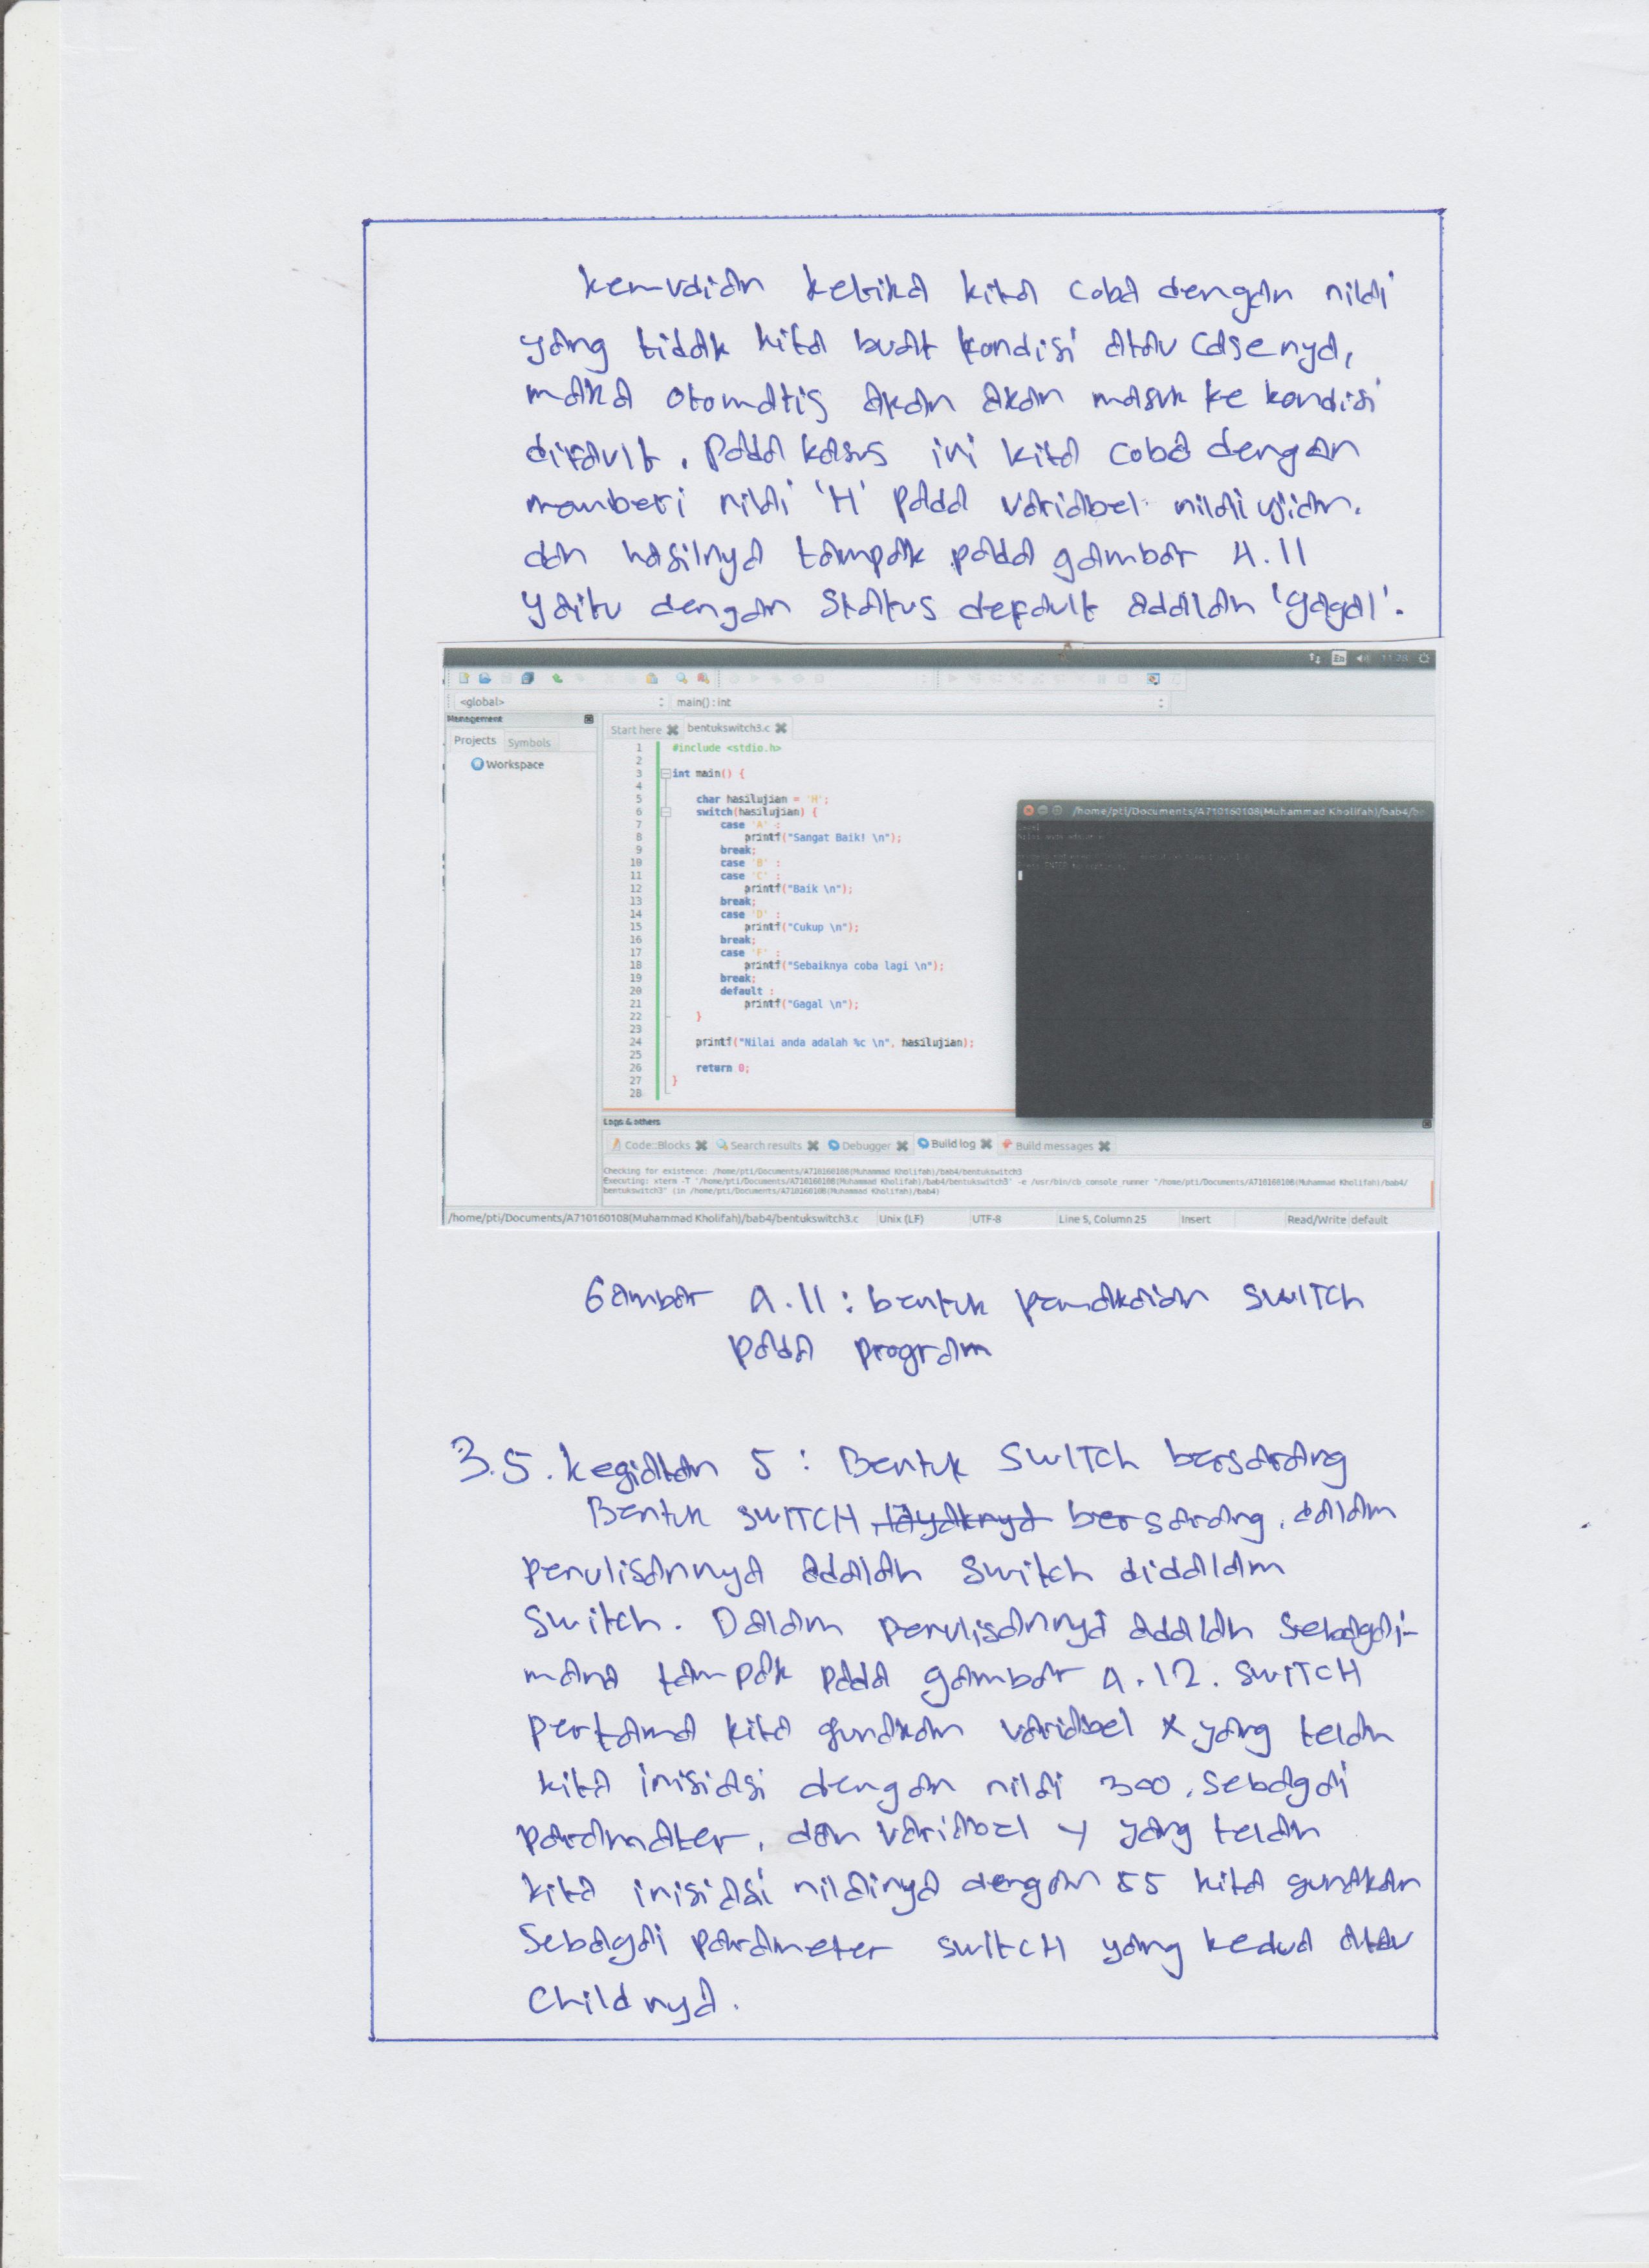 kemudian ketika kita coba dengan nilai
yang tidak kita buat kondisi atau casenya,
maka otomatis akan akan masuk ke kondisi
difault. pada kasus ini kita coba dengan
memberi nilai 'H' pada variabel nilai ujian.
dan hasilnya tampak pada gambar 4.11
yaitu dengan status default adalah 'gagal'.
En 11:28
<global> main() : int
Management
Start here bentukswitch3.c
Projects Symbols
Workspace
1 #include <stdio.h>
2
3 int main() {
4
5 char hasilujian = 'H';
6 switch(hasilujian) {
7 case 'A' :
8 printf("Sangat Baik! \n");
9 break;
10 case 'B' :
11 case 'C' :
12 printf("Baik \n");
13 break;
14 case 'D' :
15 printf("Cukup \n");
16 break;
17 case 'F' :
18 printf("Sebaiknya coba lagi \n");
19 break;
20 default :
21 printf("Gagal \n");
22 }
23
24 printf("Nilai anda adalah %c \n", hasilujian);
25
26 return 0;
27 }
28
/home/pti/Documents/A710160108(Muhammad Kholifah)/bab4/be
Logs & others
Code::Blocks Search results Debugger Build log Build messages
Checking for existence: /home/pti/Documents/A710160108(Muhammad Kholifah)/bab4/bentukswitch3
Executing: xterm -T '/home/pti/Documents/A710160108(Muhammad Kholifah)/bab4/bentukswitch3' -e /usr/bin/cb_console_runner "/home/pti/Documents/A710160108(Muhammad Kholifah)/bab4/
bentukswitch3" (in /home/pti/Documents/A710160108(Muhammad Kholifah)/bab4)
/home/pti/Documents/A710160108(Muhammad Kholifah)/bab4/bentukswitch3.c Unix (LF) UTF-8 Line 5, Column 25 Insert Read/Write default
Gambar 4.11 : bentuk pemakaian SWITCH
pada program
3.5. kegiatan 5 : Bentuk SWITCH bersarang
Bentuk SWITCH layaknya bersarang, dalam
penulisannya adalah switch didalam
switch. Dalam penulisannya adalah sebagai-
mana tampak pada gambar 4.12. SWITCH
pertama kita gunakan variabel x yang telah
kita inisiasi dengan nilai 300, sebagai
paramater, dan variabel y yang telah
kita inisiasi nilainya dengan 55 kita gunakan
Sebagai parameter switch yang kedua atau
Childnya.